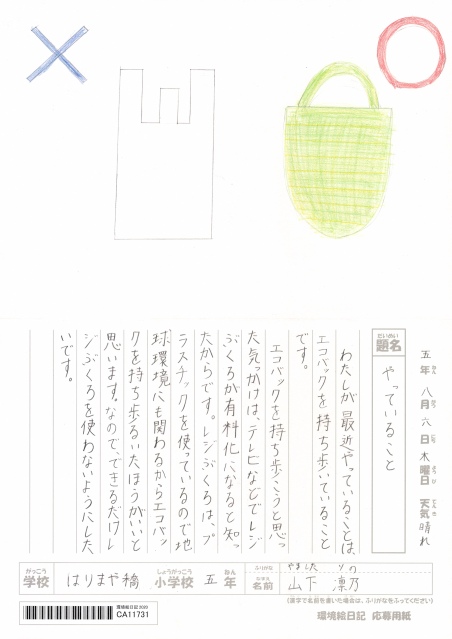 五年 八月 六日 木曜日 天気 晴れ
題名 やっていること
わたしが最近やっていることは、
エコバックを持ち歩いていること
です。
エコバックを持ち歩こうと思っ
た気っかけは、テレビなどでレジ
ぶくろが有料化になると知っ
たからです。レジぶくろは、プ
ラスチックを使っているので地
球環境にも関わるからエコバッ
クを持ち歩るいたほうがいいと
思います。なので、できるだけレ
ジぶくろを使わないようにした
いです。
がっこう しょうがっこう ねん ふりがな やました りの
学校 はりまや橋 小学校 五年 名前 山下 凜乃
(漢字で名前を書いた場合は、ふりがなをふってください)
環境絵日記 応募用紙
環境絵日記 2020
CA11731